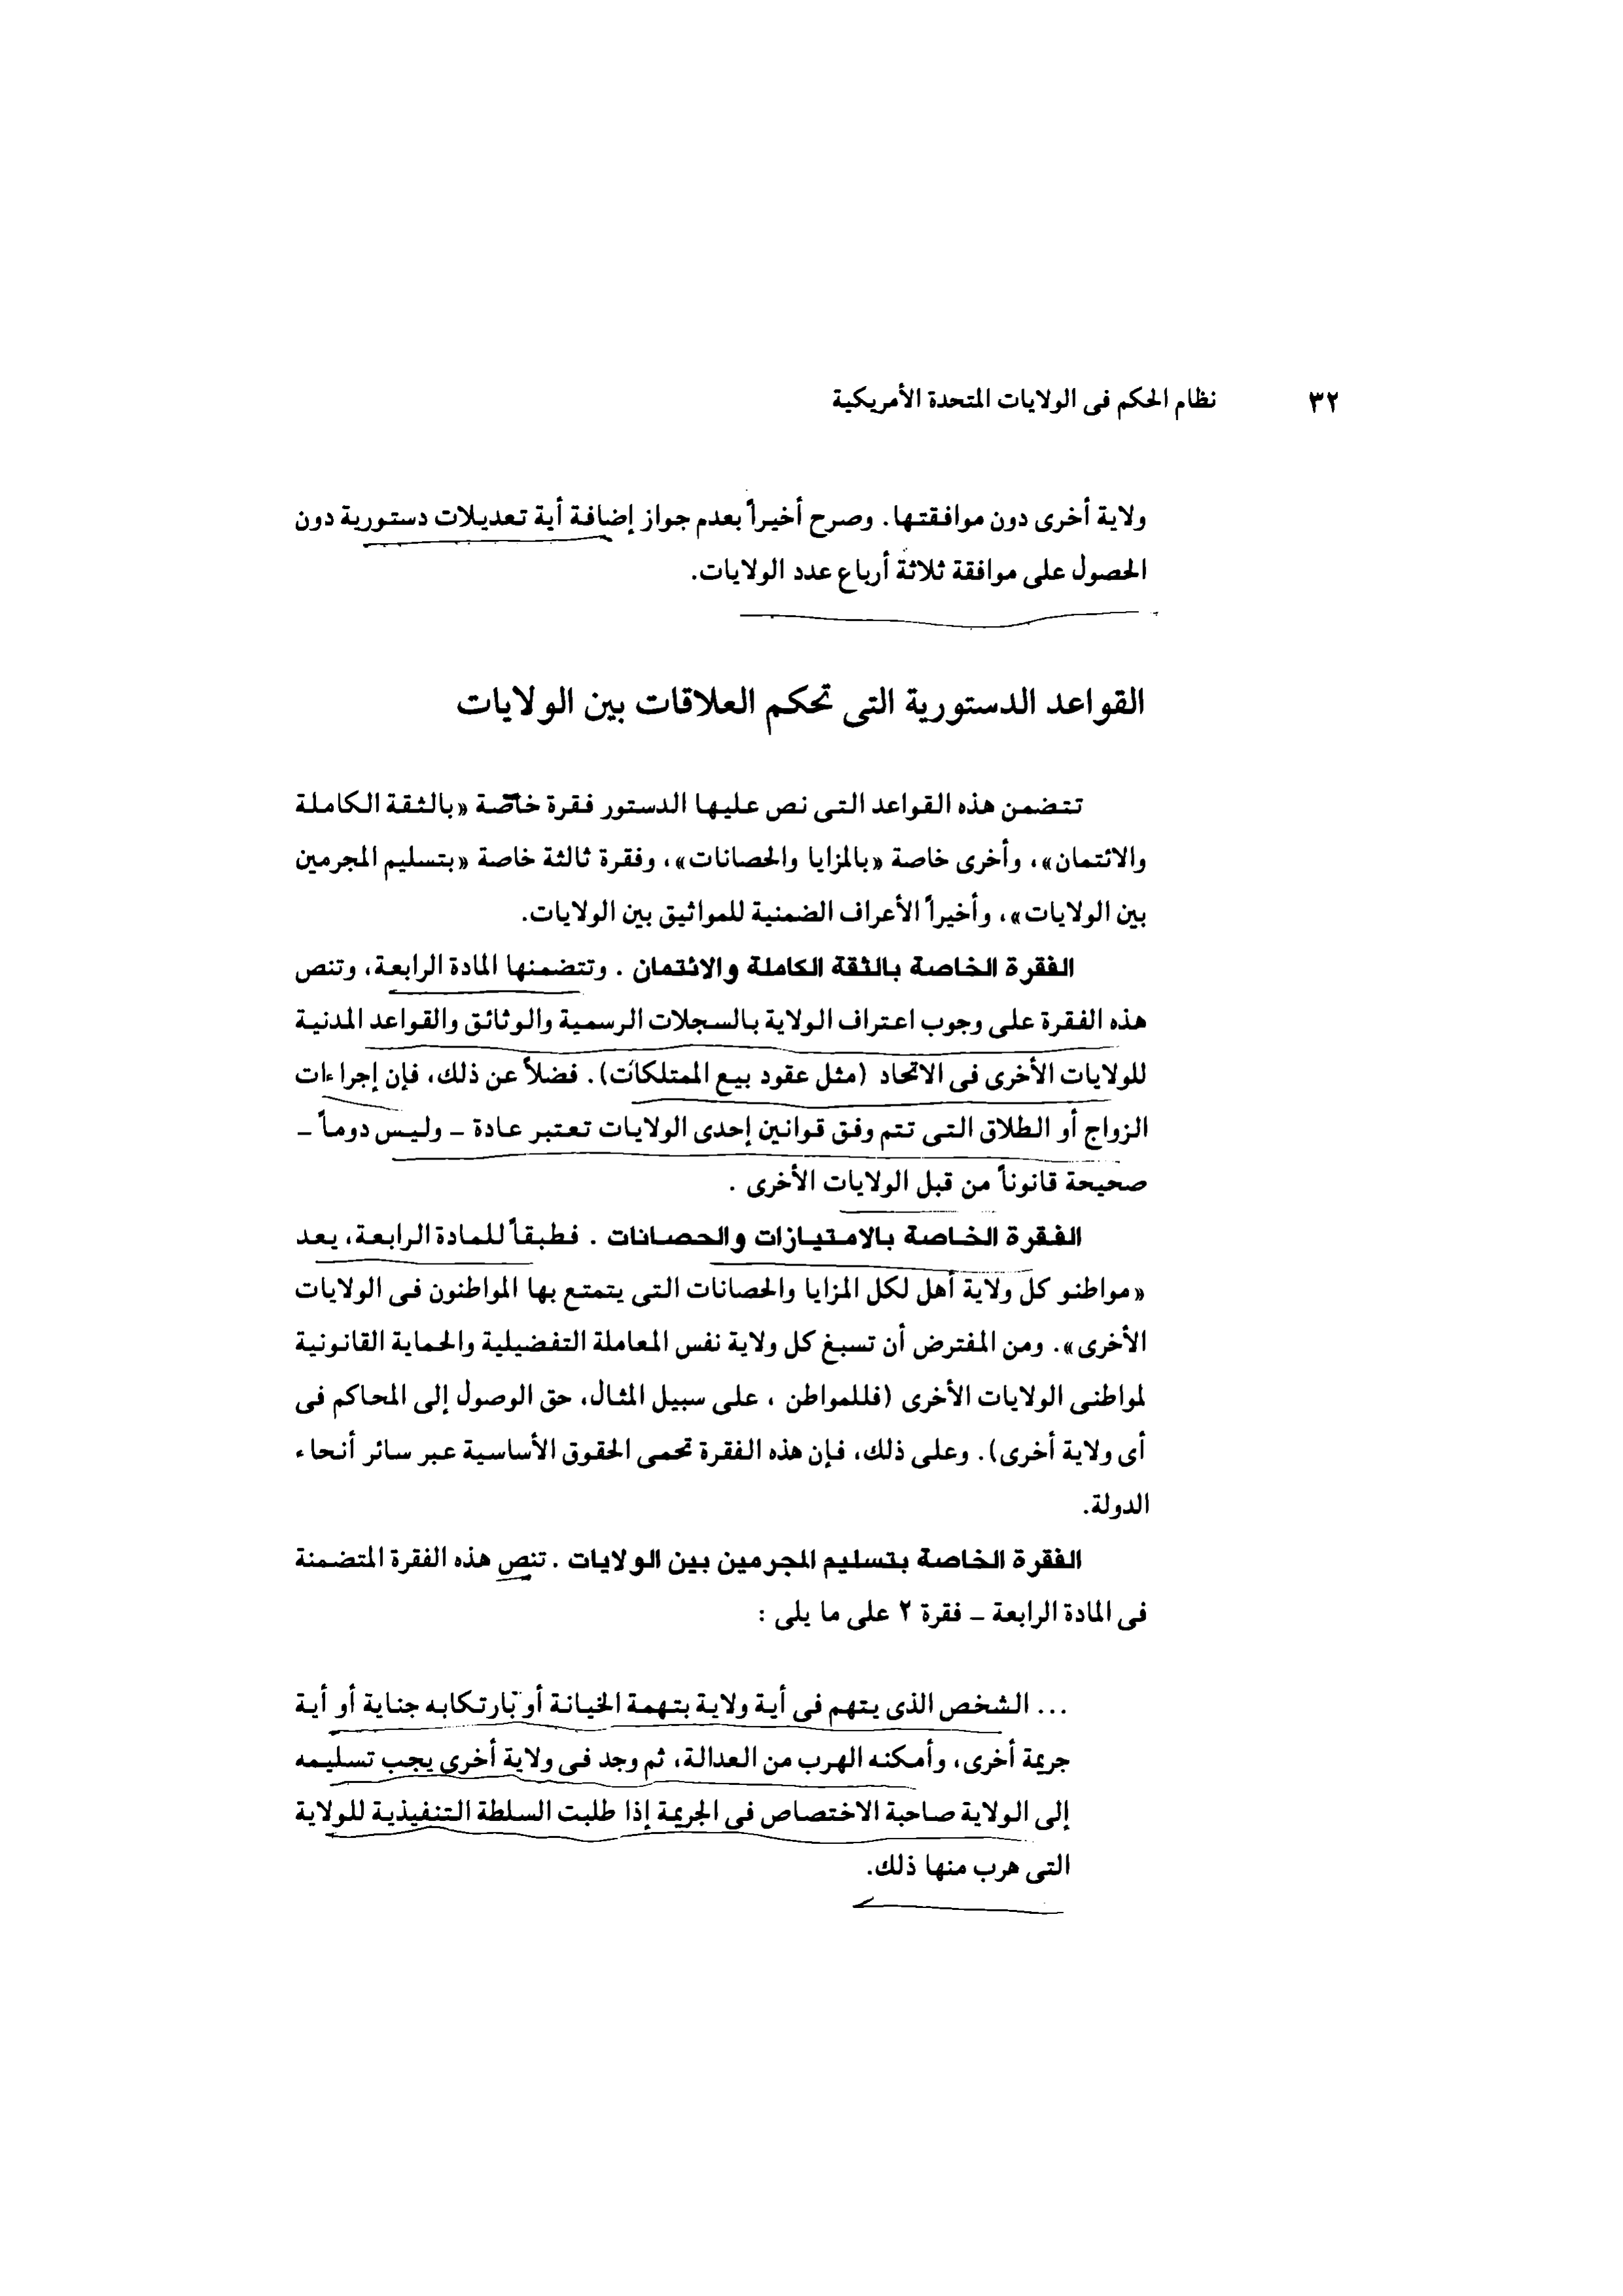 ٣٢ نظام الحكم فى الولايات المتحدة الأمريكية
ولاية أخرى دون موافقتها. وصرح أخيراً بعدم جواز إضافة أية تعديلات دستورية دون
الحصول على موافقة ثلاثة أرباع عدد الولايات.
القواعد الدستورية التى تحكم العلاقات بين الولايات
تتضمن هذه القواعد التى نص عليها الدستور فقرة خاصة «بالثقة الكاملة
والائتمان»، وأخرى خاصة «بالمزايا والحصانات»، وفقرة ثالثة خاصة «بتسليم المجرمين
بين الولايات»، وأخيراً الأعراف الضمنية للمواثيق بين الولايات.
الفقرة الخاصة بالثقة الكاملة والائتمان . وتتضمنها المادة الرابعة، وتنص
هذه الفقرة على وجوب اعتراف الولاية بالسجلات الرسمية والوثائق والقواعد المدنية
للولايات الأخرى فى الاتحاد (مثل عقود بيع الممتلكات). فضلاً عن ذلك، فإن إجراءات
الزواج أو الطلاق التى تتم وفق قوانين إحدى الولايات تعتبر عادة – وليس دوماً –
صحيحة قانوناً من قبل الولايات الأخرى .
الفقرة الخاصة بالامتيازات والحصانات . فطبقاً للمادة الرابعة، يعد
«مواطنو كل ولاية أهل لكل المزايا والحصانات التى يتمتع بها المواطنون فى الولايات
الأخرى». ومن المفترض أن تسبغ كل ولاية نفس المعاملة التفضيلية والحماية القانونية
لمواطنى الولايات الأخرى (فللمواطن ، على سبيل المثال، حق الوصول إلى المحاكم فى
أى ولاية أخرى). وعلى ذلك، فإن هذه الفقرة تحمى الحقوق الأساسية عبر سائر أنحاء
الدولة.
الفقرة الخاصة بتسليم المجرمين بين الولايات . تنص هذه الفقرة المتضمنة
فى المادة الرابعة – فقرة ٢ على ما يلى :
... الشخص الذى يتهم فى أية ولاية بتهمة الخيانة أو بارتكابه جناية أو أية
جريمة أخرى، وأمكنه الهرب من العدالة، ثم وجد فى ولاية أخرى يجب تسليمه
إلى الولاية صاحبة الاختصاص فى الجريمة إذا طلبت السلطة التنفيذية للولاية
التى هرب منها ذلك.